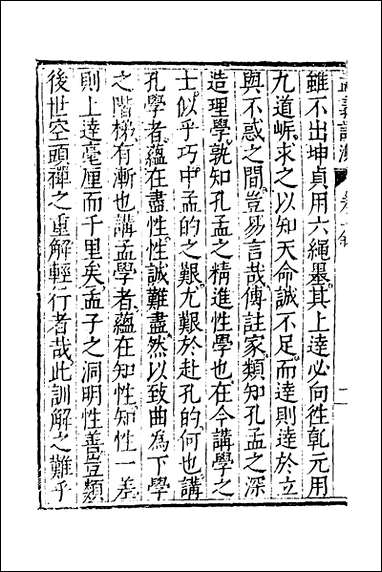 孟義訂測 卷一 二
雖不出坤貞用六繩墨其上達必向徃乾元用
九道㟁求之以知天命誠不足而達則達於立
與不惑之間豈易言哉傳註家類知孔孟之深
造理學孰知孔孟之精進性學也在今講學之
士似乎巧中孟的之艱尤艱於赴孔的何也講
孔學者蘊在盡性性誠難盡然以致曲為下學
之階梯有漸也講孟學者蘊在知性知性一差
則上達毫厘而千里矣孟子之洞明性善豈類
後世空頭禪之重解輕行者哉此訓解之難乎